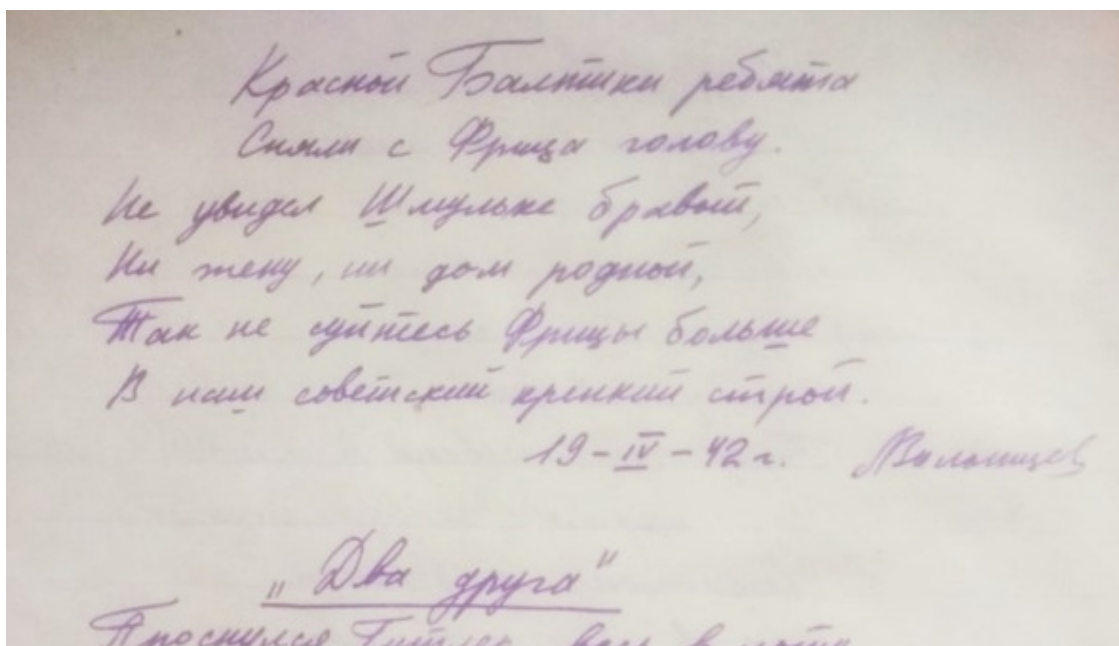 Красной Балтики ребята
Сняли с Фрица голову.
Не увидел Шмульке бравый,
Ни жену, ни дом родной,
Так не суйтесь Фрицы больше
В наш советский крепкий строй.
19-IV-42 г.
„Два друга"
Проснулся Гитлер весь в поту